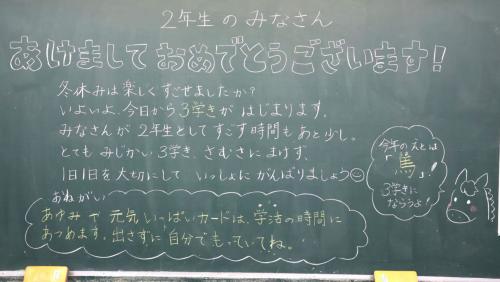 2年生のみなさん
あけましておめでとうございます!
冬休みは楽しくすごせましたか?
いよいよ、今日から3学きがはじまります。
みなさんが2年生としてすごす時間もあと少し。
とてもみじかい3学き、さむさにまけず、
1日1日を大切にしていっしょにがんばりましょう
おねがい
あゆみや元気いっぱいカードは、学活の時間に
あつめます。出さずに自分でもっていてね。
今年のえとは
「馬」!
3学きに
ならうよ!